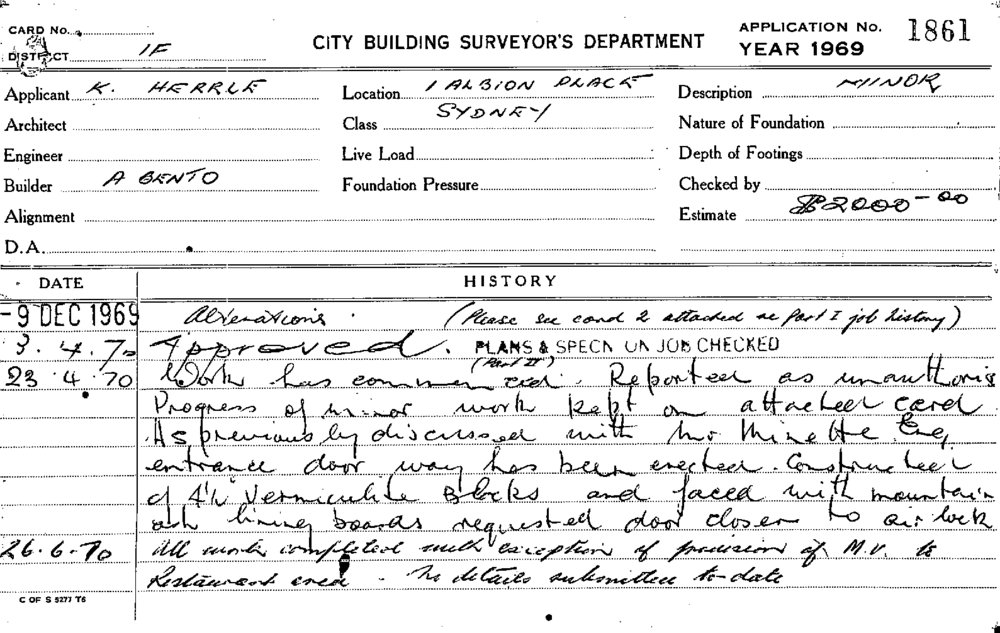 CARD No.
DISTRICT 1F
CITY BUILDING SURVEYOR'S DEPARTMENT
APPLICATION No. 1861
YEAR 1969
Applicant K. HERRLE
Location 1 ALBION PLACE
Description MINOR
Architect
Class SYDNEY
Nature of Foundation
Engineer
Live Load
Depth of Footings
Builder A BENTO
Foundation Pressure
Checked by
Alignment
Estimate $2000-00
D.A.
DATE HISTORY
-9 DEC 1969 Alterations. (Please see card 2 attached re Part I job history)
3.4.70 Approved. PLANS & SPECN ON JOB CHECKED
(Part II)
23.4.70 Work has commenced. Reported as unauthoris
Progress of minor work kept on attached card
As previously discussed with Mr Eng.
entrance door way has been erected. Constructed
of 4½" Vermiculite Blocks and faced with mountain
ash lining boards requested door closer to air lock
26.6.70 All work completed with exception of provision of M.V. to
Restaurant area - No details submitted to-date
C OF S 5277 T6